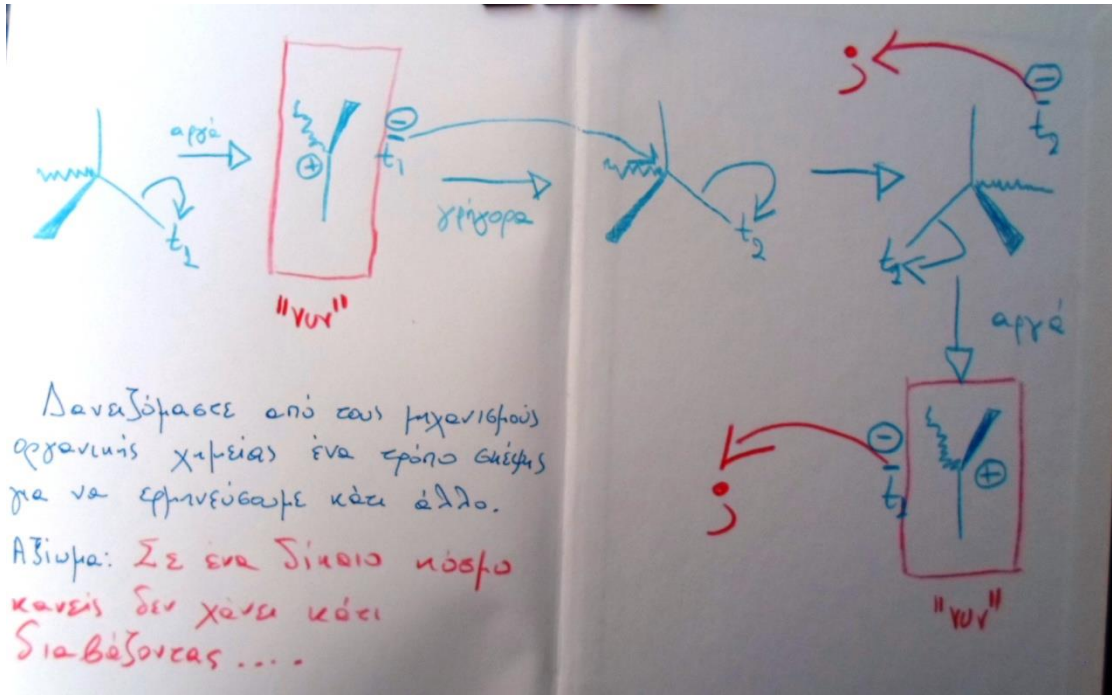 αργά
t₂
⊕
⊖
t₁
"νυν"
γρήγορα
t₂
⊖
t₂
;
t₂
αργά
Δανειζόμαστε από τους μηχανισμούς
οργανικής χημείας ένα τρόπο σκέψης
για να ερμηνεύσουμε κάτι άλλο.
Αξίωμα: Σε ένα δίκαιο κόσμο
κανείς δεν χάνει κάτι
διαβάζοντας ....
;
⊖
⊕
"νυν"